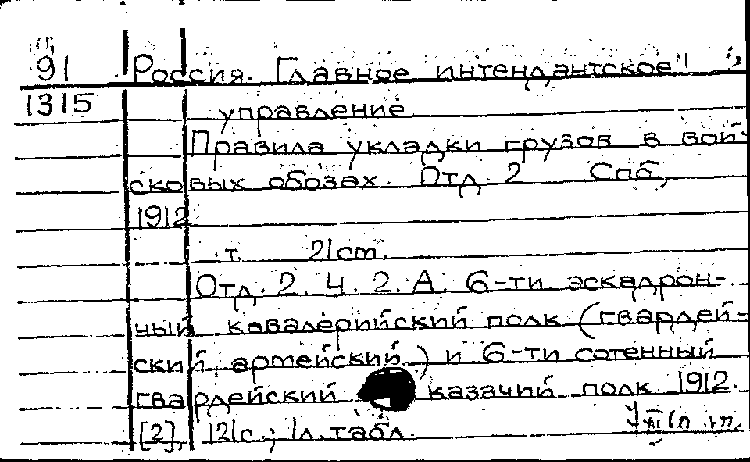 91 Россия. Главное интендантское
1315 управление
Правила укладки грузов в вой-
сковых обозах. Отд. 2 Спб,
1912
т. 21 cm.
Отд. 2. Ч. 2. А. 6-ти эскадрон-
ный кавалерийский полк (гвардей-
ский, армейский) и 6-ти сотенный
гвардейский казачий полк. 1912.
[2], 121 с.; 1 л. табл.